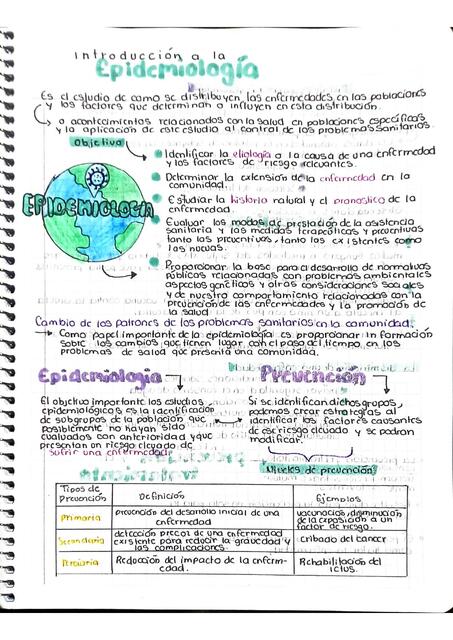 introducción a la
Epidemiología
Es el estudio de como se distribuyen las enfermedades en las poblaciones
y los factores que determinan o influyen en esta distribución.
o acontecimientos relacionados con la salud en poblaciones específicas
y la aplicación de este estudio al control de los problemas sanitarios.
Objetivo
Identificar la etiología o la causa de una enfermedad
y los factores de riesgo relevantes.
Determinar la extensión de la enfermedad en la
comunidad.
Estudiar la historia natural y el pronostico de la
enfermedad.
EPIDEMIOLOGIA
Evaluar los modos de prestación de la asistencia
sanitaria y las medidas terapeuticas y preventivas
tanto las preventivas, tanto las existentes como
las nuevas.
Proporcionar la base para el desarrollo de normativas
públicas relacionadas con problemas ambientales
aspectos genéticos y otras consideraciones sociales
y de nuestro comportamiento relacionadas con la
prevención de las enfermedades y la promoción de
la salud
Cambio de los patrones de los problemas sanitarios en la comunidad.
Como papel importante de la epidemiología es proporcionar información
sobre los cambios que tienen lugar, con el paso del tiempo, en los
problemas de salud que presenta una comunidad.
Epidemiología
Prevención
El objetivo importante los estudios
epidemiológicos es la identificación
de subgrupos de la población que
posiblemente no hayan sido
evaluados con anterioridad y que
presentan un riesgo elevado de
sufrir una enfermedad.
Si se identifican dichos grupos,
podemos crear estrategias al
identificar los factores causantes
de ese riesgo elevado y se podran
modificar.
Niveles de prevención
Tipos de Prevención Definición Ejemplos
Primaria prevención del desarrollo inicial de una enfermedad vacunación, disminución de la exposición a un factor de riesgo.
Secundaria detección precoz de una enfermedad existente para reducir la gravedad y las complicaciones. Cribado del cancer
Terciaria Reducción del impacto de la enfermedad. Rehabilitación del ictus.